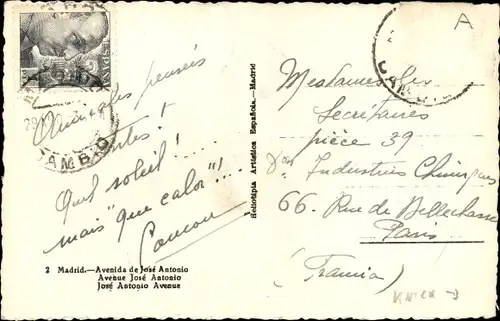 A
ESPAÑA
Amicales pensées
!
Quel soleil !....
mais "que calor"!....
Mesdames les
Secrétaires
pièce 39
Industries Chimiques
66. Rue de Bellechasse
Paris
(Francia)
Heliotipia Artística Española.—Madrid
2 Madrid.—Avenida de José Antonio
Avenue José Antonio
José Antonio Avenue